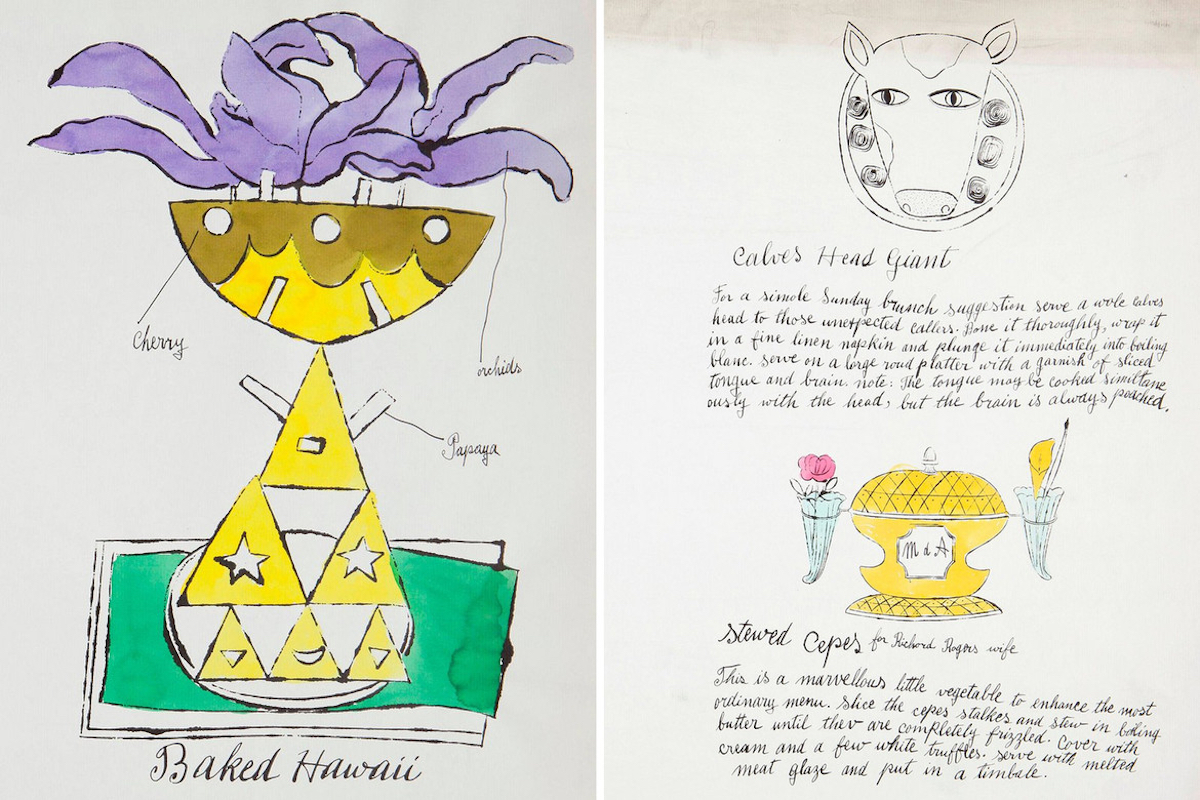 Cherry
orchids
Papaya
Baked Hawaii
Calves Head Giant
For a simole Sunday brunch suggestion serve a wole calves
head to those unexpected callers. Bone it thoroughly, wrap it
in a fine linen napkin and plunge it immediately into boiling
blanc. serve on a large roud platter with a garnish of sliced
tongue and brain. note: The tongue may be cooked similtane
ously with the head, but the brain is always poached.
M d A
Stewed Cepes for Richard Rogers wife
This is a marvellous little vegetable to enhance the most
ordinary menu. Slice the cepes stalkes and stew in boiling
butter until they are completely frizzled. Cover with
cream and a few white truffles. serve with melted
meat glaze and put in a timbale.